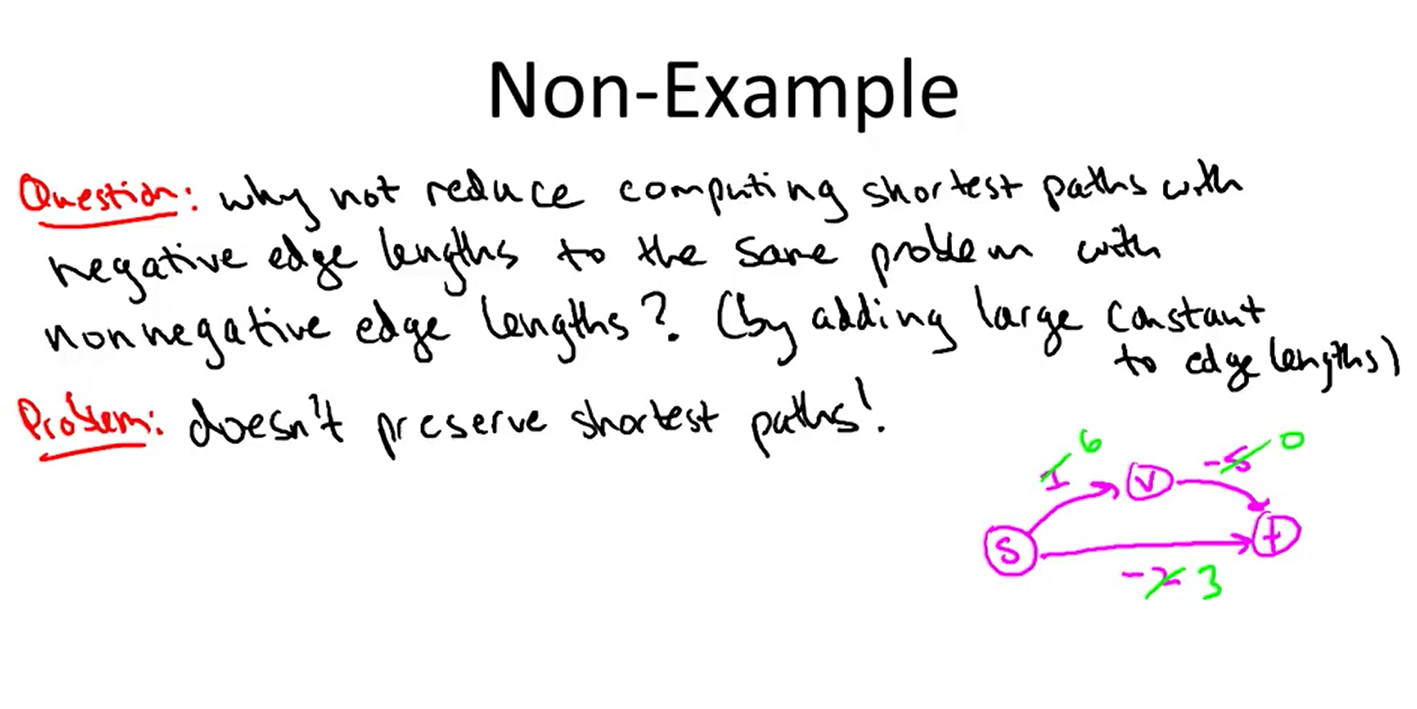 Non-Example
Question: why not reduce computing shortest paths with
negative edge lengths to the same problem with
nonnegative edge lengths? (by adding large constant
to edge lengths)
Problem: doesn't preserve shortest paths!
1 6
-5 0
v
s
t
-2 3